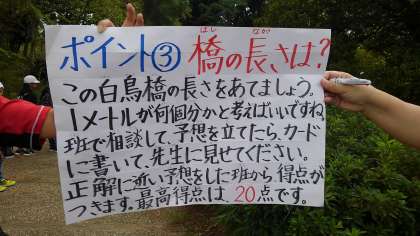 ポイント③ 橋の長さは?
はし なが
この白鳥橋の長さをあてましょう。
1メートルが何個分かと考えばいいですね。
班で相談して、予想を立てたら、カード
に書いて、先生に見せてください。
正解に近い予想をした班から、得点が
つきます。最高得点は、20点です。